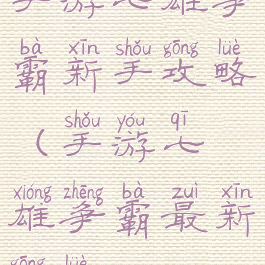 手游七雄争
bà xīn shǒu gōng lüè
霸新手攻略
shǒu yóu qī
（手游七
xióng zhēng bà zuì xīn
雄争霸最新
gōng lüè